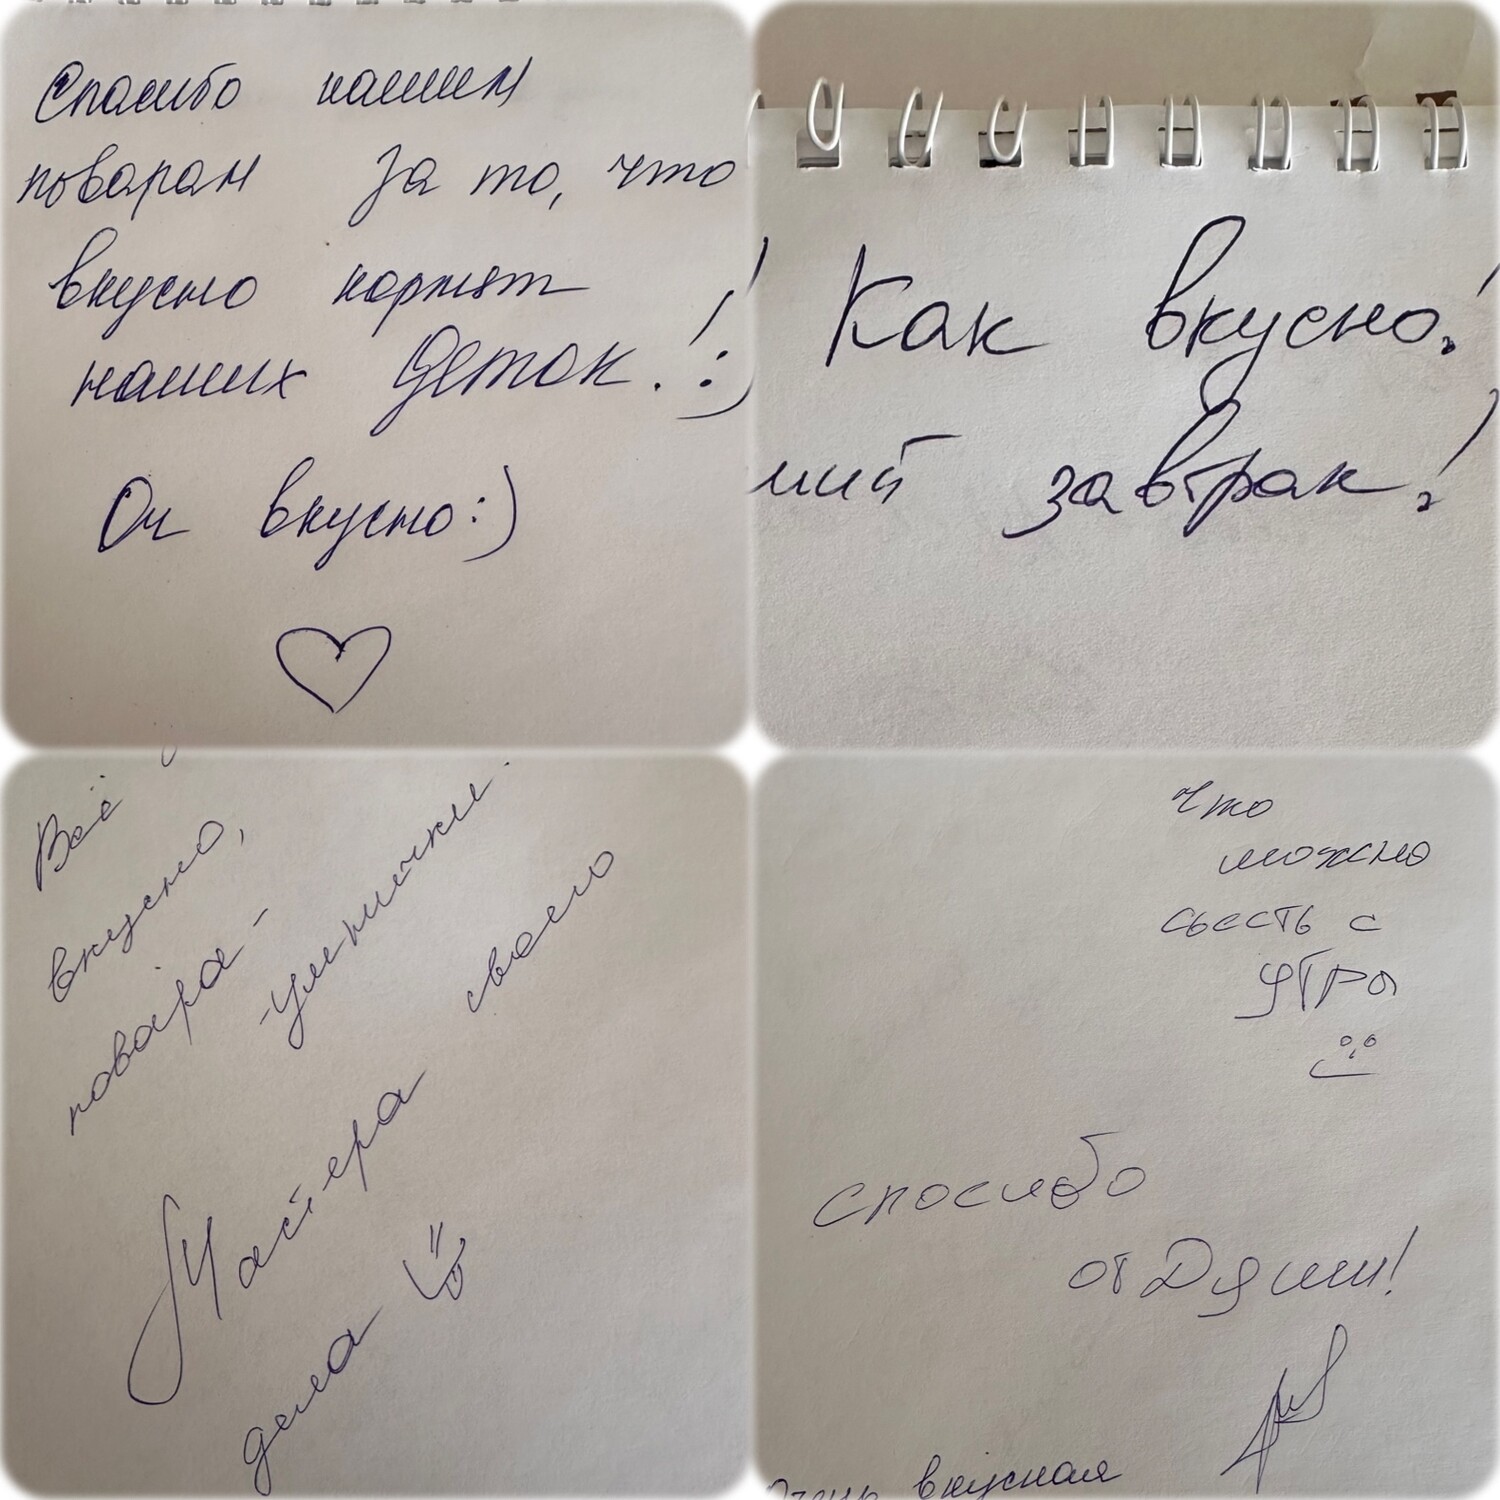 Спасибо нашим
поварам за то, что
вкусно кормят
наших деток! :)
Оч вкусно :)
Как вкусно!
ший завтрак!
Всё
вкусно,
повара -
- умнички.
Мастера своего
дела
что
можно
съесть с
утра
спосибо
от Дяши!
Очень вкусная